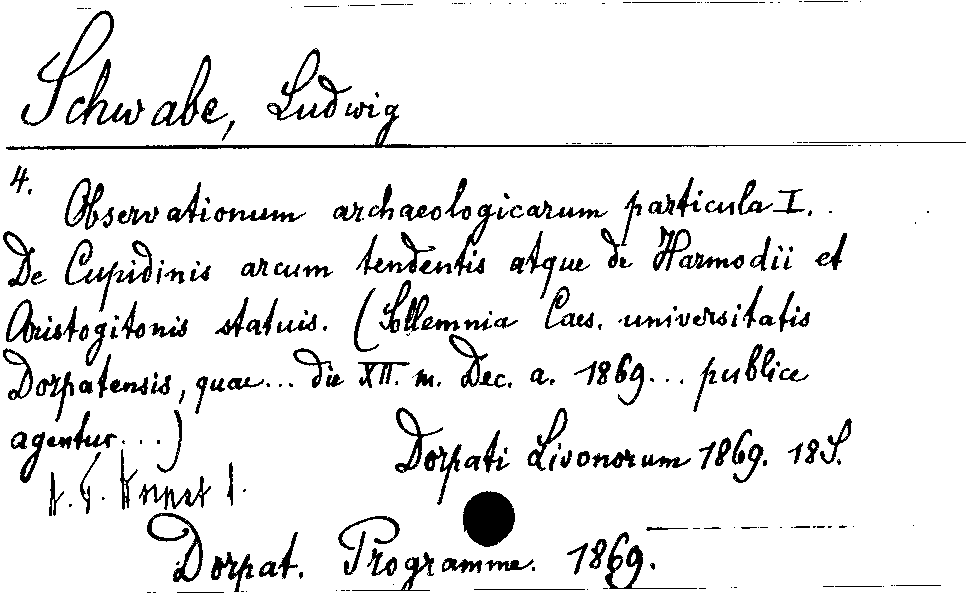 Schwabe, Ludwig
4.
Observationum archaeologicarum particula I.
De Cupidinis arcum tendentis atque de Harmodii et
Aristogitonis statuis. (Sollemnia Caes. universitatis
Dorpatensis, quae... die XII. m. Dec. a. 1869... publice
agentur...)
Dorpati Livonorum 1869. 18 S.
Dorpat. Programme. 1869.